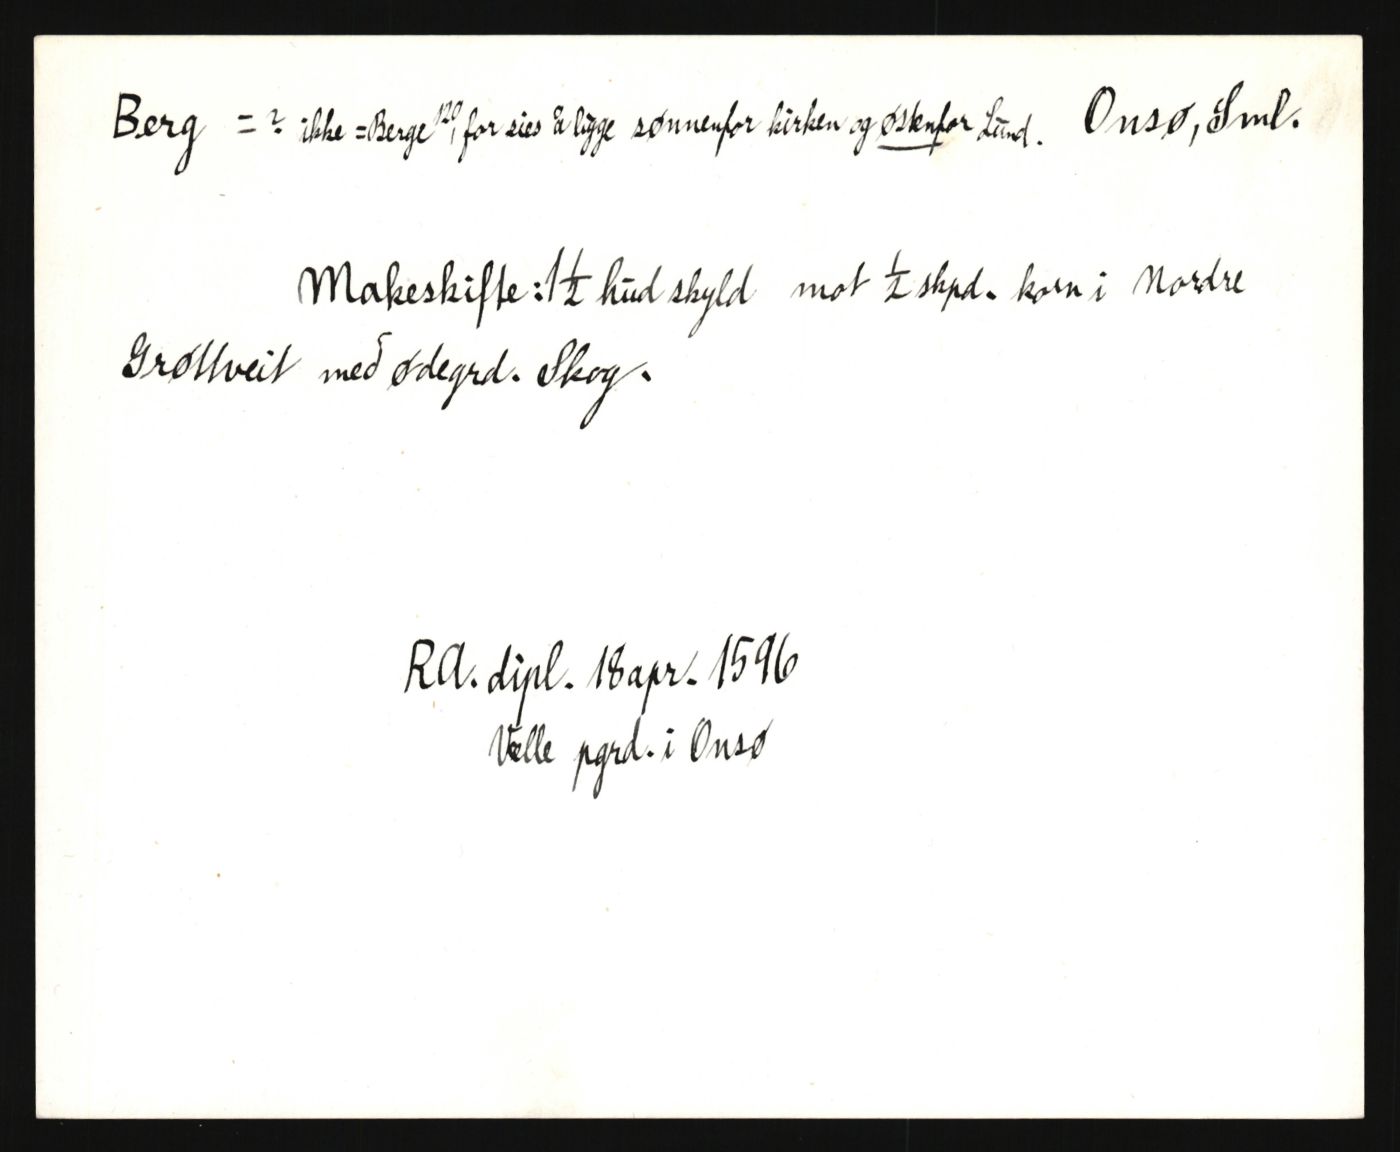 Berg = ? ikke = Berge 120, for sies å ligge sønnenfor kirken og østenfor Lund. Onsø, Sml.
Makeskifte: 1 1/2 hud skyld mot 1/2 skpd. korn i Nordre
Grøttveit med ødegrd. Skog.
RA. dipl. 18 apr. 1596
Vælle pgrd. i Onsø